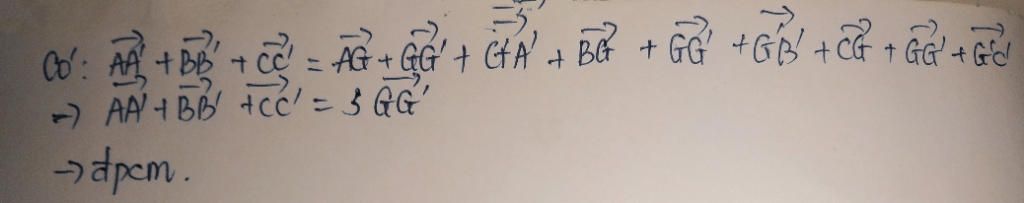 Có: AA' + BB' + CC' = AG + GG' + G'A' + BG + GG' + G'B' + CG + GG' + G'C'
→ AA' + BB' + CC' = 3 GG'
→ đpcm.